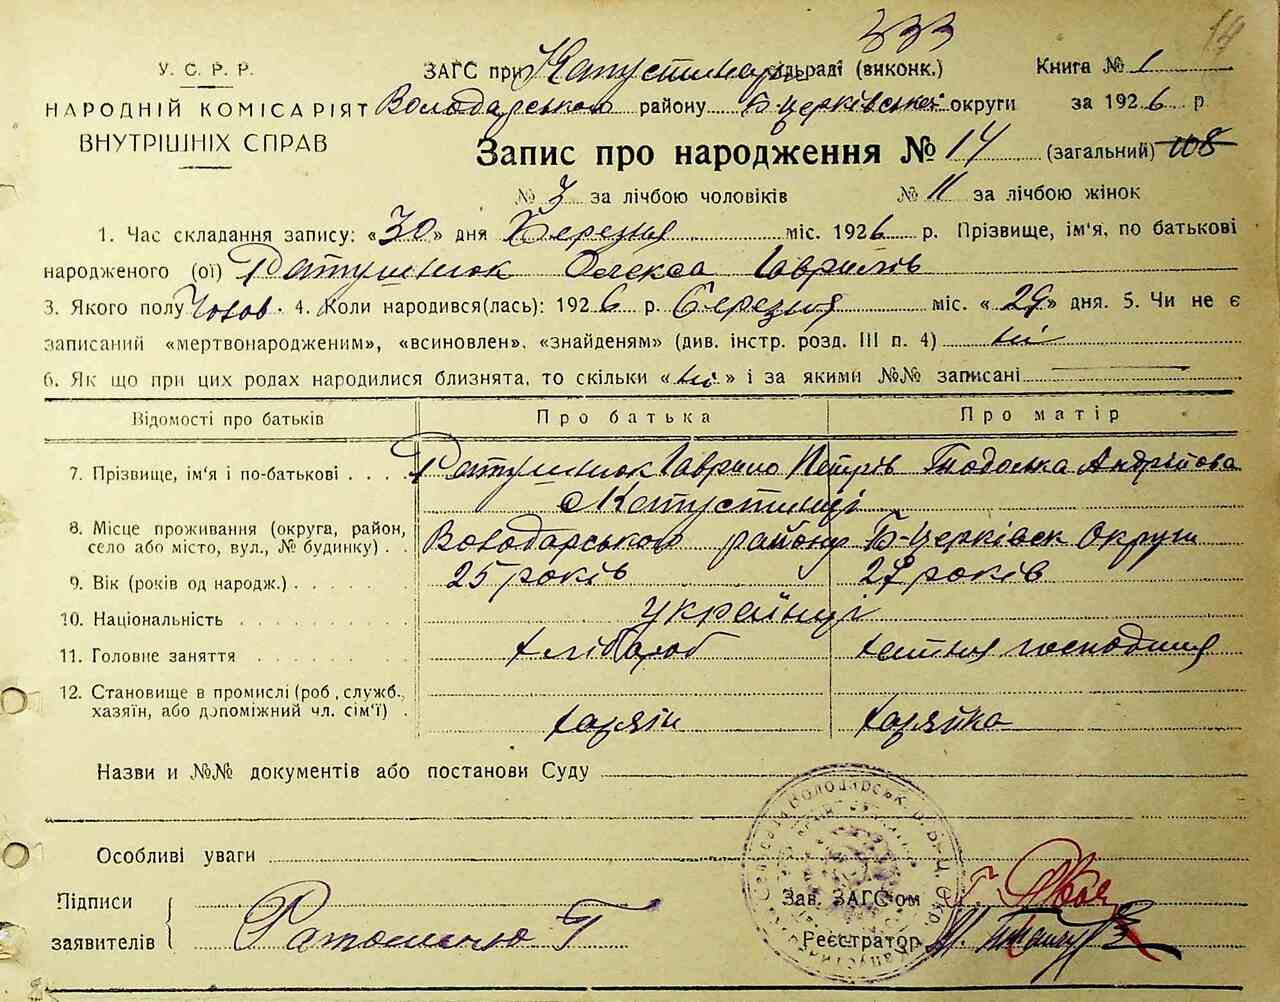 333
14
У. С. Р. Р.
НАРОДНІЙ КОМІСАРІЯТ
ВНУТРІШНІХ СПРАВ
ЗАГС при Капустинскр сільраді (виконк.) Книга № 1
Володарського району Б церківської округи за 1926 р
Запис про народження № 14 (загальний) 108
№ 3 за лічбою чоловіків № 11 за лічбою жінок
1. Час складання запису: «30» дня Березня міс. 1926 р. Прізвище, ім'я, по батькові
народженого (ої) Ратушнюк Олекса Гаврилів
3. Якого полу Чолов. 4. Коли народився(лась): 1926 р. Березня міс. «29» дня. 5. Чи не є
записаний «мертвонародженим», «всиновлен», «знайденям» (див. інстр. розд. III п. 4) ні
6. Як що при цих родах народилися близнята, то скільки «ні» і за якими №№ записані
Відомості про батьків Про батька Про матір
7. Прізвище, ім'я і по-батькові Ратушнюк Гаврило Петрів Тодоська Андрійова
с Капустинці
8. Місце проживання (округа, район, село або місто, вул., № будинку) Володарського району Б-Церківськ Округи
9. Вік (років од народж.) 25 років 27 років
10. Національність українці
11. Головне заняття хлібороб хатня господиня
12. Становище в промислі (роб, служб., хазяїн, або допоміжний чл. сім'ї) хазяін хазяйка
Назви и №№ документів або постанови Суду
Особливі уваги
Підписи
заявителів
Зав. ЗАГС'ом
Реєстратор